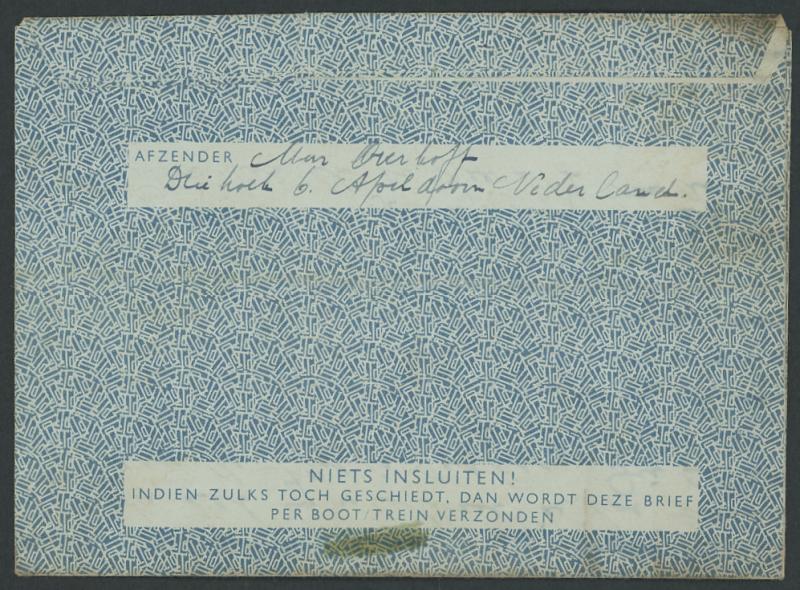 AFZENDER Mur Overhoff
Driehoek 6. Apeldoorn Nederland.
NIETS INSLUITEN!
INDIEN ZULKS TOCH GESCHIEDT, DAN WORDT DEZE BRIEF
PER BOOT/TREIN VERZONDEN